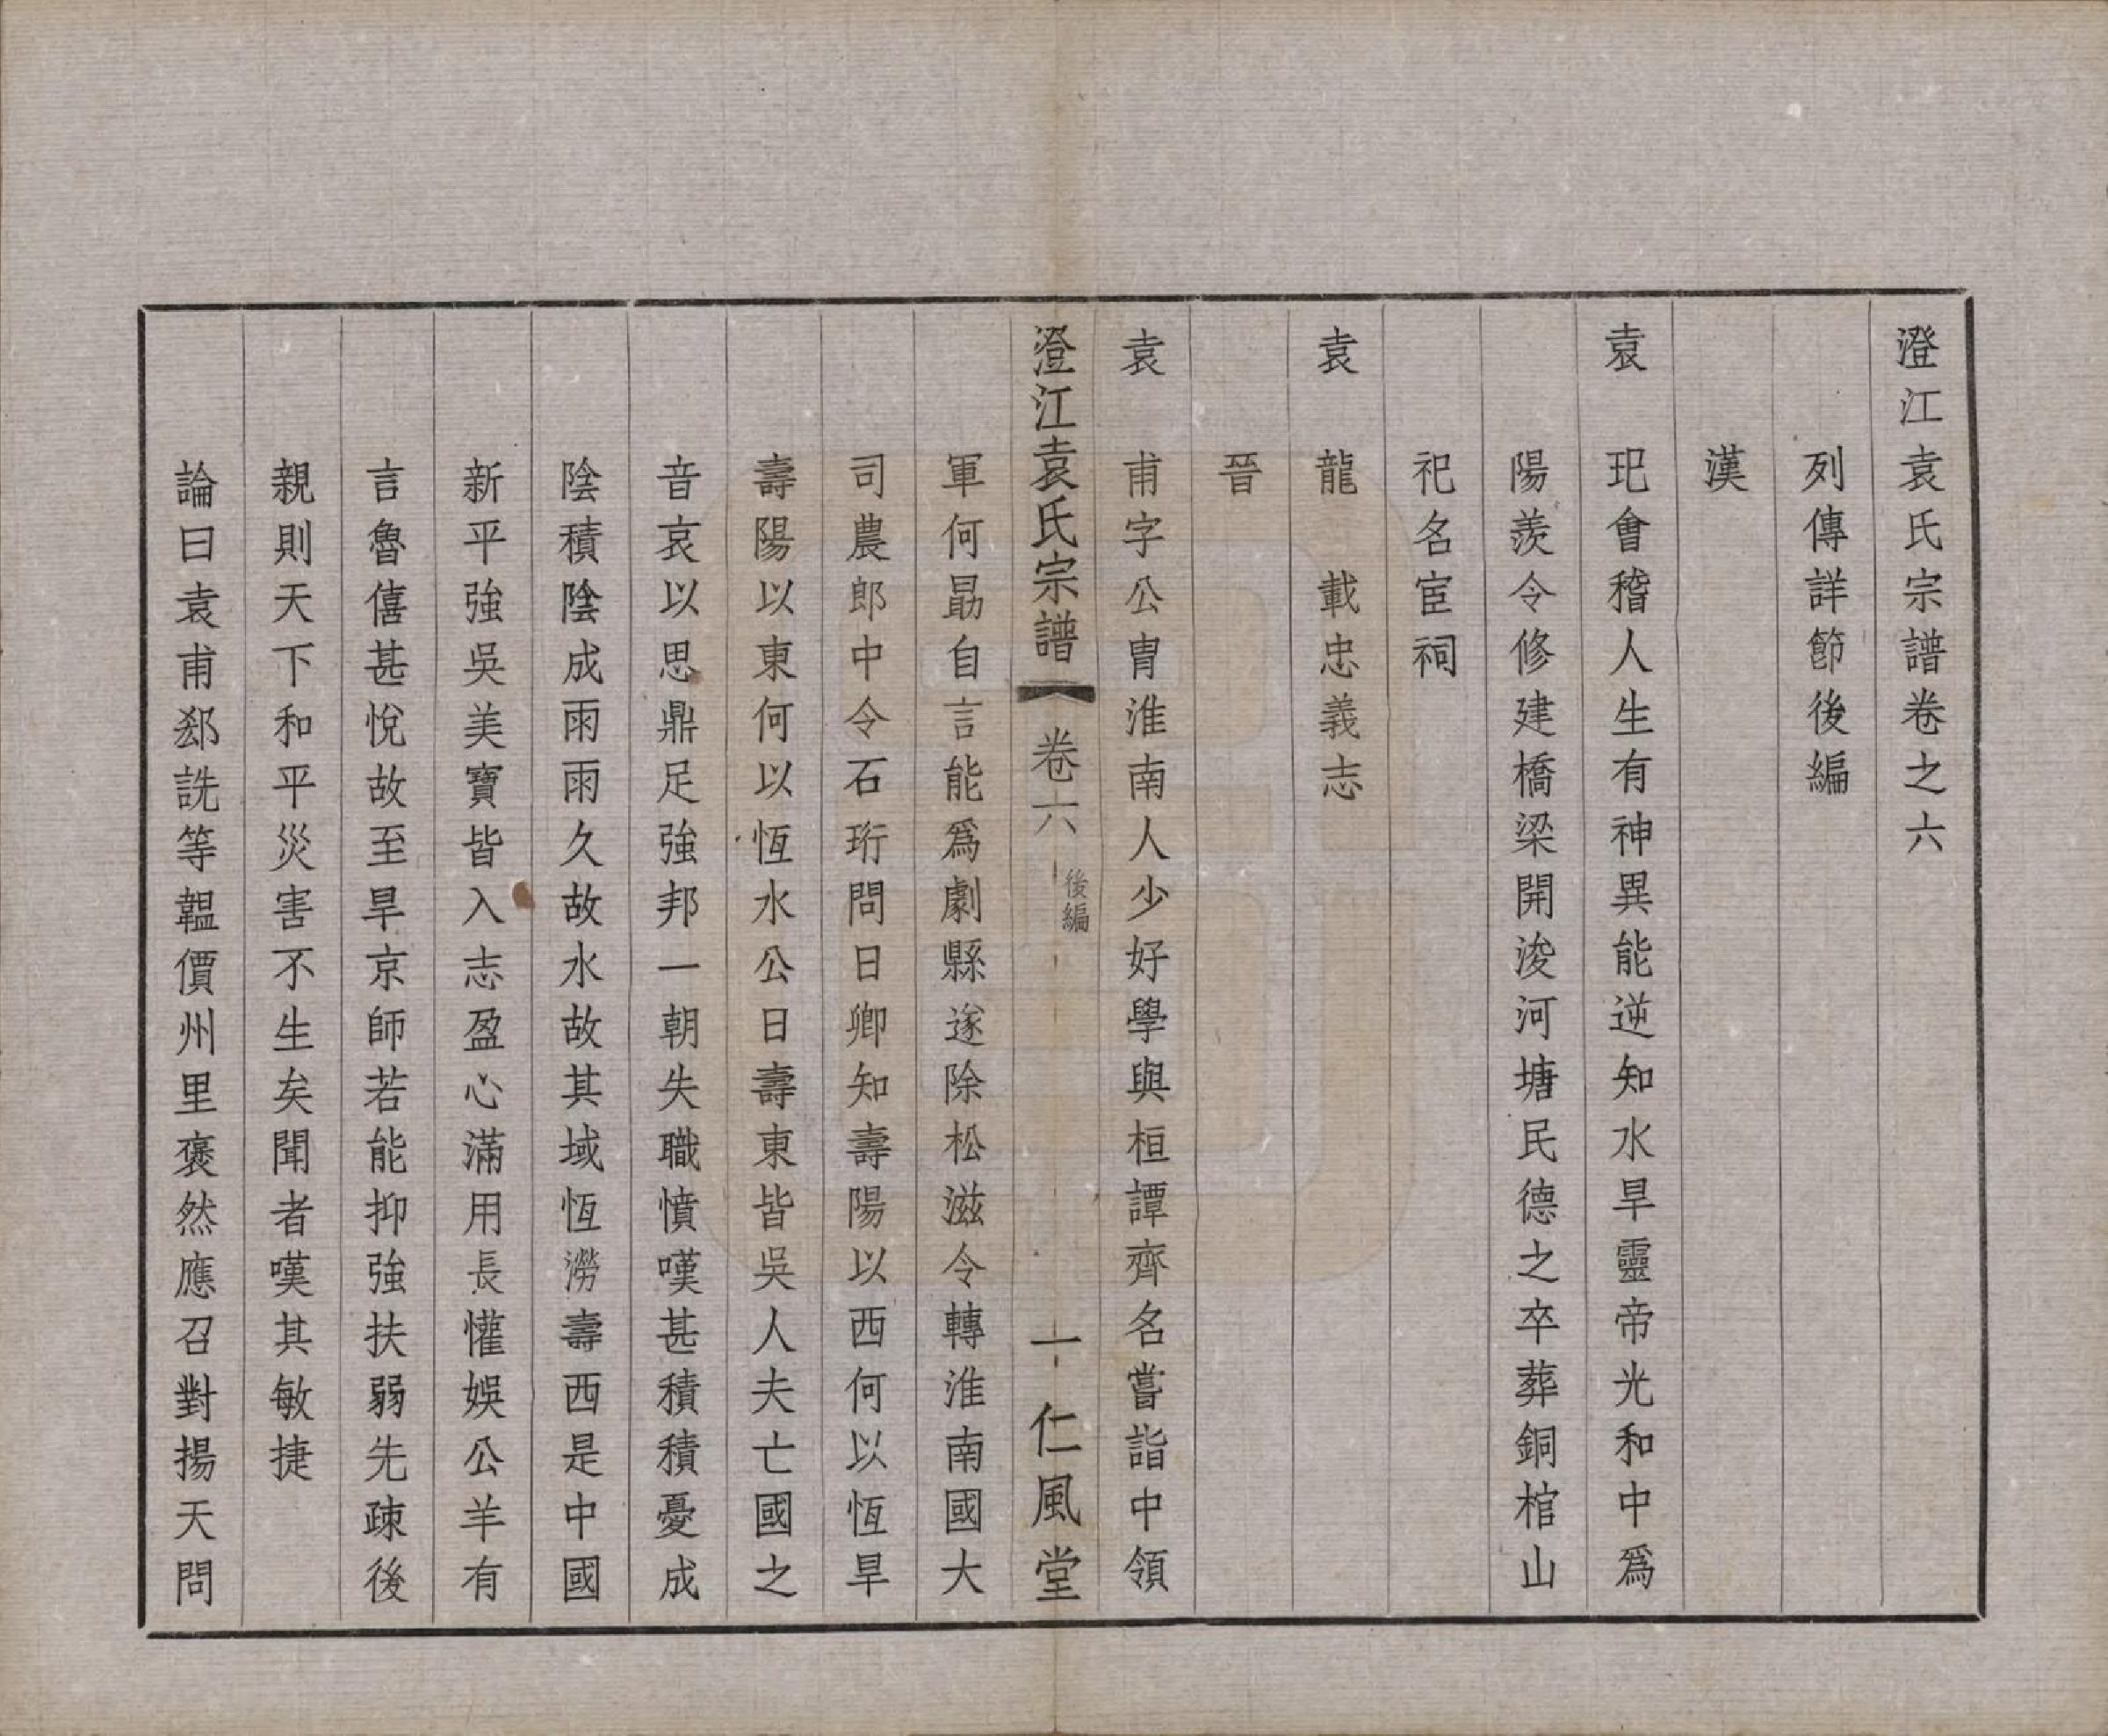 澄江袁氏宗譜卷之六
列傳詳節後編
漢
袁玘會稽人生有神異能逆知水旱靈帝光和中爲
陽羨令修建橋梁開浚河塘民德之卒葬銅棺山
祀名宦祠
袁龍 載忠義志
晉
袁甫字公冑淮南人少好學與桓譚齊名嘗詣中領
澄江袁氏宗譜 卷六 後編 一 仁風堂
軍何勗自言能爲劇縣遂除松滋令轉淮南國大
司農郎中令石珩問曰卿知壽陽以西何以恆旱
壽陽以東何以恆水公曰壽東皆吳人夫亡國之
音哀以思鼎足強邦一朝失職憤嘆甚積積憂成
陰積陰成雨雨久故水故其域恆澇壽西是中國
新平強吳美寶皆入志盈心滿用長懽娛公羊有
言魯僖甚悅故至旱京師若能抑強扶弱先疎後
親則天下和平災害不生矣聞者嘆其敏捷
論曰袁甫郄詵等韞價州里褒然應召對揚天問